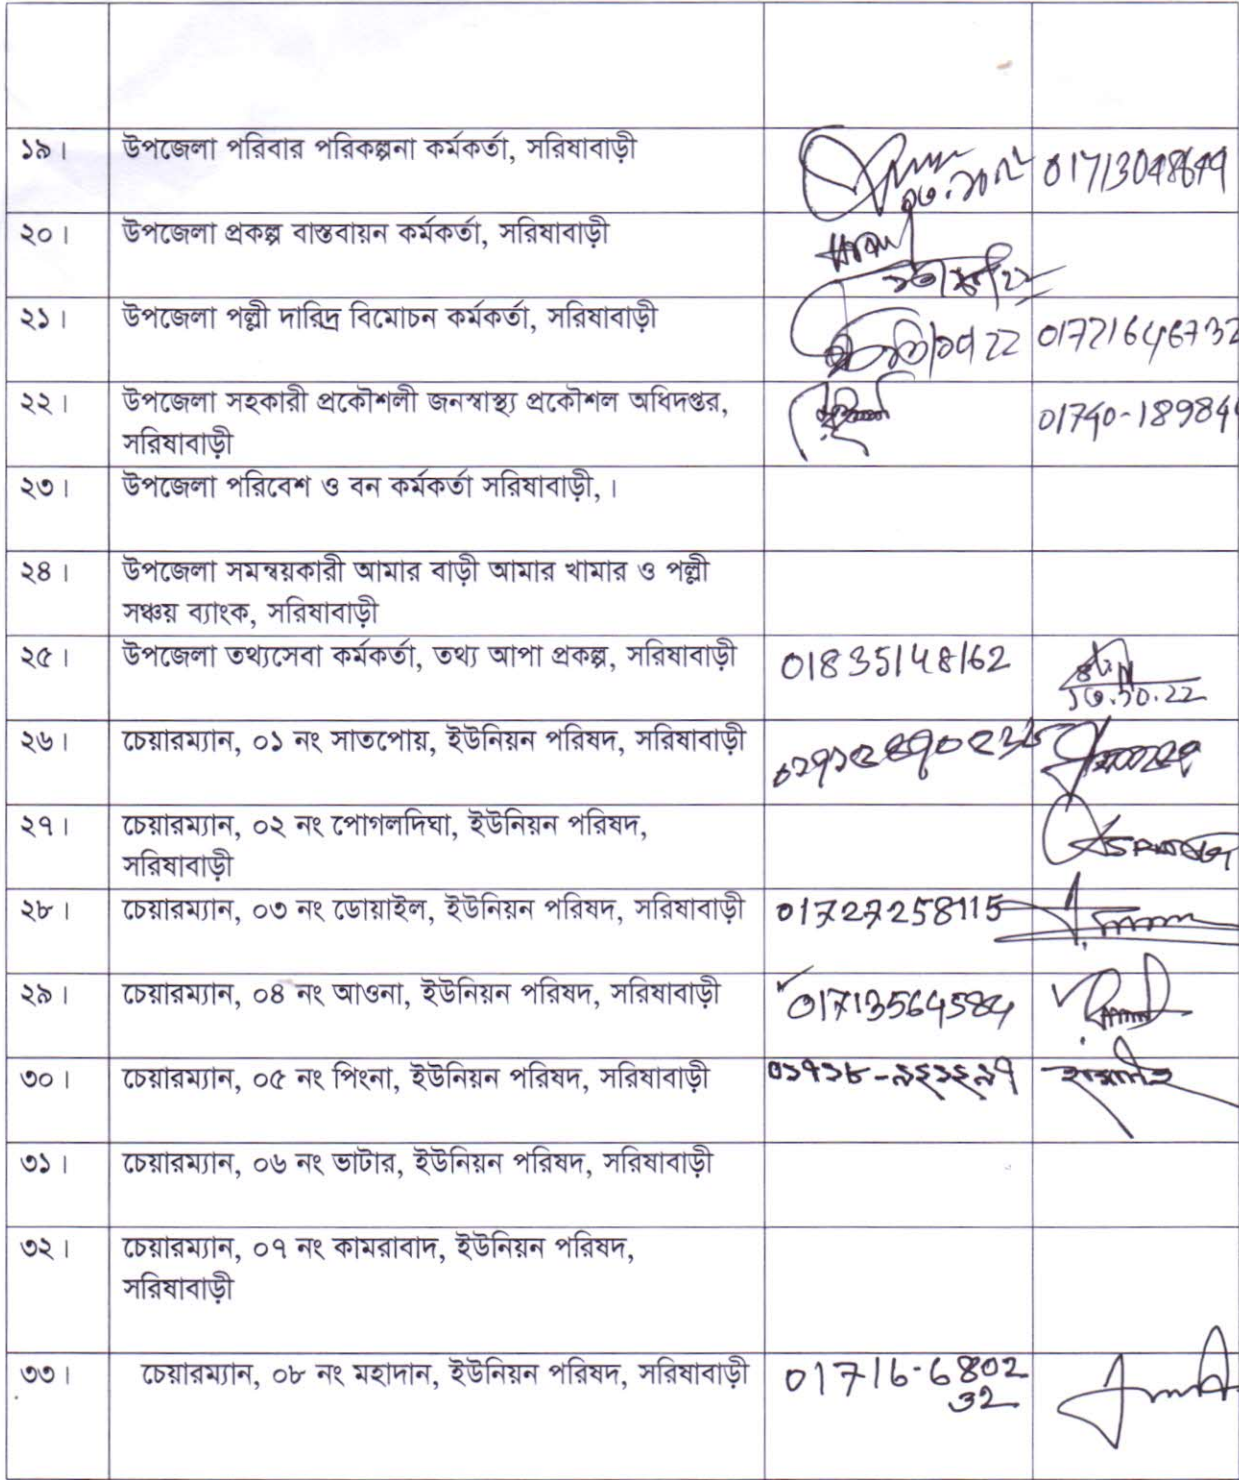 ১৯। উপজেলা পরিবার পরিকল্পনা কর্মকর্তা, সরিষাবাড়ী
২০। উপজেলা প্রকল্প বাস্তবায়ন কর্মকর্তা, সরিষাবাড়ী
২১। উপজেলা পল্লী দারিদ্র বিমোচন কর্মকর্তা, সরিষাবাড়ী
২২। উপজেলা সহকারী প্রকৌশলী জনস্বাস্থ্য প্রকৌশল অধিদপ্তর,
সরিষাবাড়ী
২৩। উপজেলা পরিবেশ ও বন কর্মকর্তা সরিষাবাড়ী,।
২৪। উপজেলা সমন্বয়কারী আমার বাড়ী আমার খামার ও পল্লী
সঞ্চয় ব্যাংক, সরিষাবাড়ী
২৫। উপজেলা তথ্যসেবা কর্মকর্তা, তথ্য আপা প্রকল্প, সরিষাবাড়ী 01835148162
২৬। চেয়ারম্যান, ০১ নং সাতপোয়, ইউনিয়ন পরিষদ, সরিষাবাড়ী
২৭। চেয়ারম্যান, ০২ নং পোগলদিঘা, ইউনিয়ন পরিষদ,
সরিষাবাড়ী
২৮। চেয়ারম্যান, ০৩ নং ডোয়াইল, ইউনিয়ন পরিষদ, সরিষাবাড়ী 01727258115
২৯। চেয়ারম্যান, ০৪ নং আওনা, ইউনিয়ন পরিষদ, সরিষাবাড়ী 01713564584
৩০। চেয়ারম্যান, ০৫ নং পিংনা, ইউনিয়ন পরিষদ, সরিষাবাড়ী
৩১। চেয়ারম্যান, ০৬ নং ভাটার, ইউনিয়ন পরিষদ, সরিষাবাড়ী
৩২। চেয়ারম্যান, ০৭ নং কামরাবাদ, ইউনিয়ন পরিষদ,
সরিষাবাড়ী
৩৩। চেয়ারম্যান, ০৮ নং মহাদান, ইউনিয়ন পরিষদ, সরিষাবাড়ী 01716-6802
32